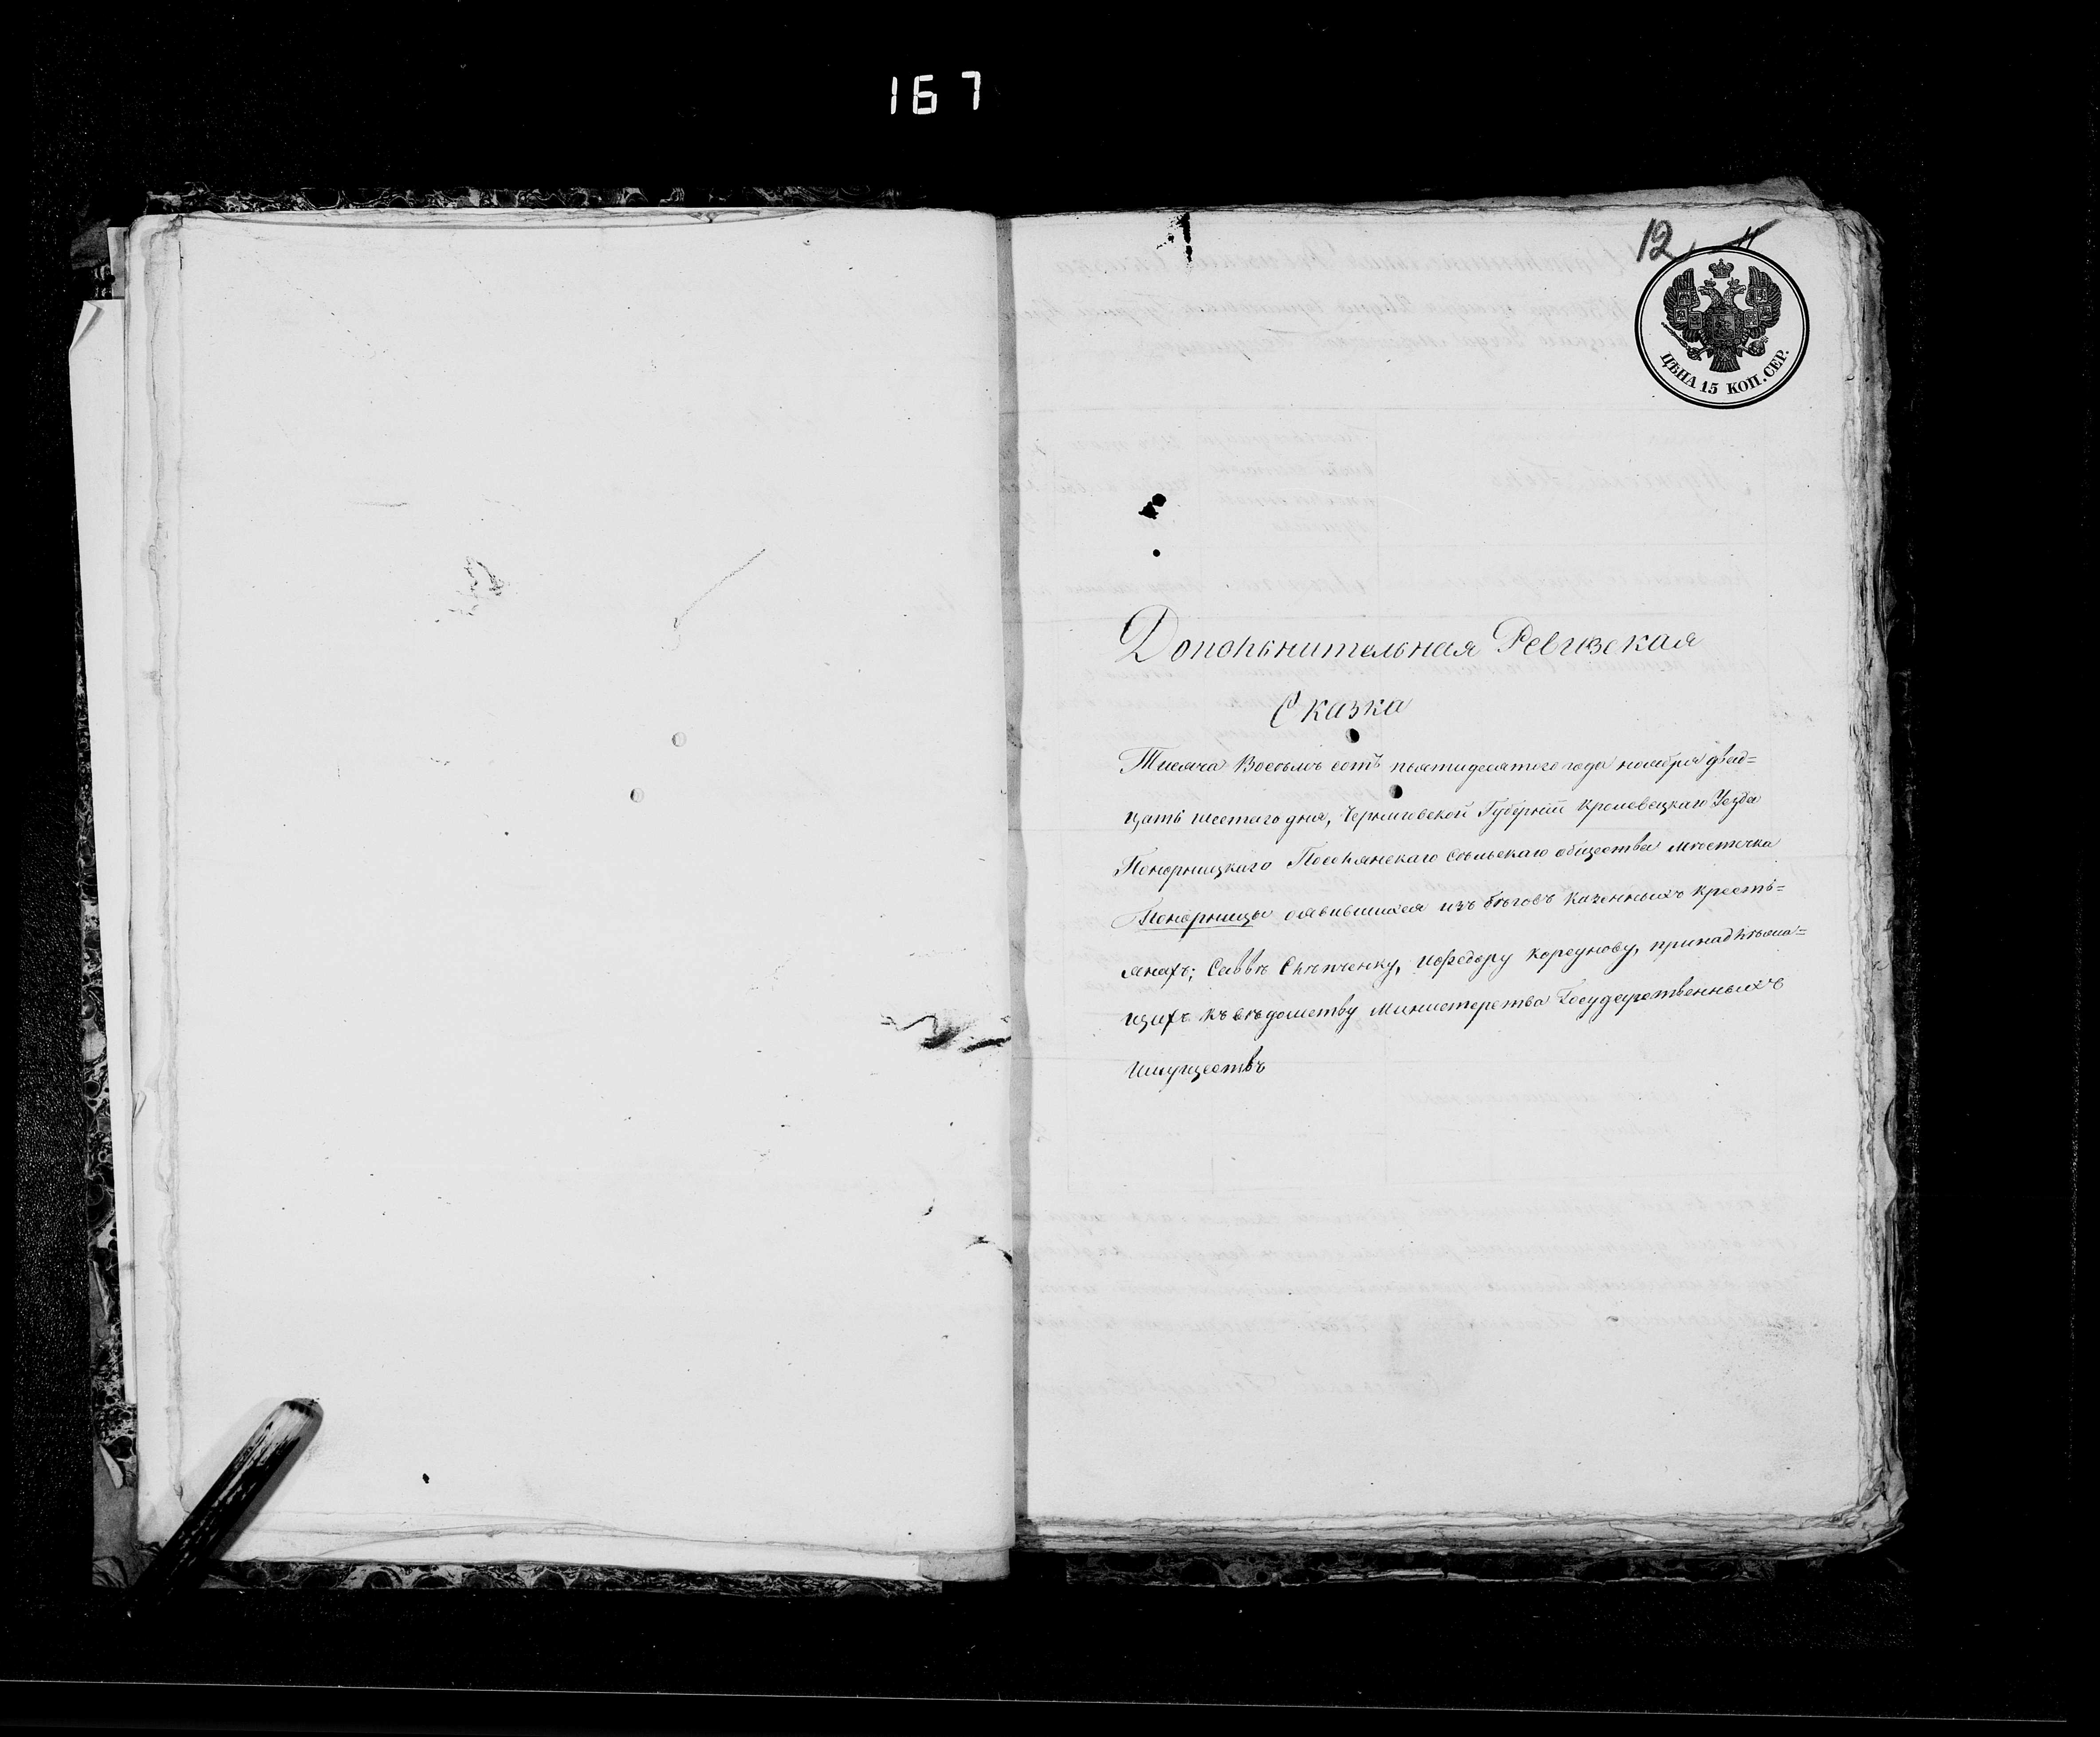 167
12
ЦѢНА 15 КОП. СЕР.
Дополнительная Ревизская
Сказка
Тысяча Восемь сотъ пьятидесятого года ноября двад=
цать шестаго дня, Черниговской Губернiи Кролевецкаго Уезда
Понорницкаго Сельскаго общества мѣстечка
Понорницы оявившихся изъ бѣговъ казенныхъ кресть=
янахъ; Саввѣ Слѣпченку, и Федору Корсунову, принадлѣжа=
щихъ къ вѣдомству Министерства Государственныхъ
Имуществъ